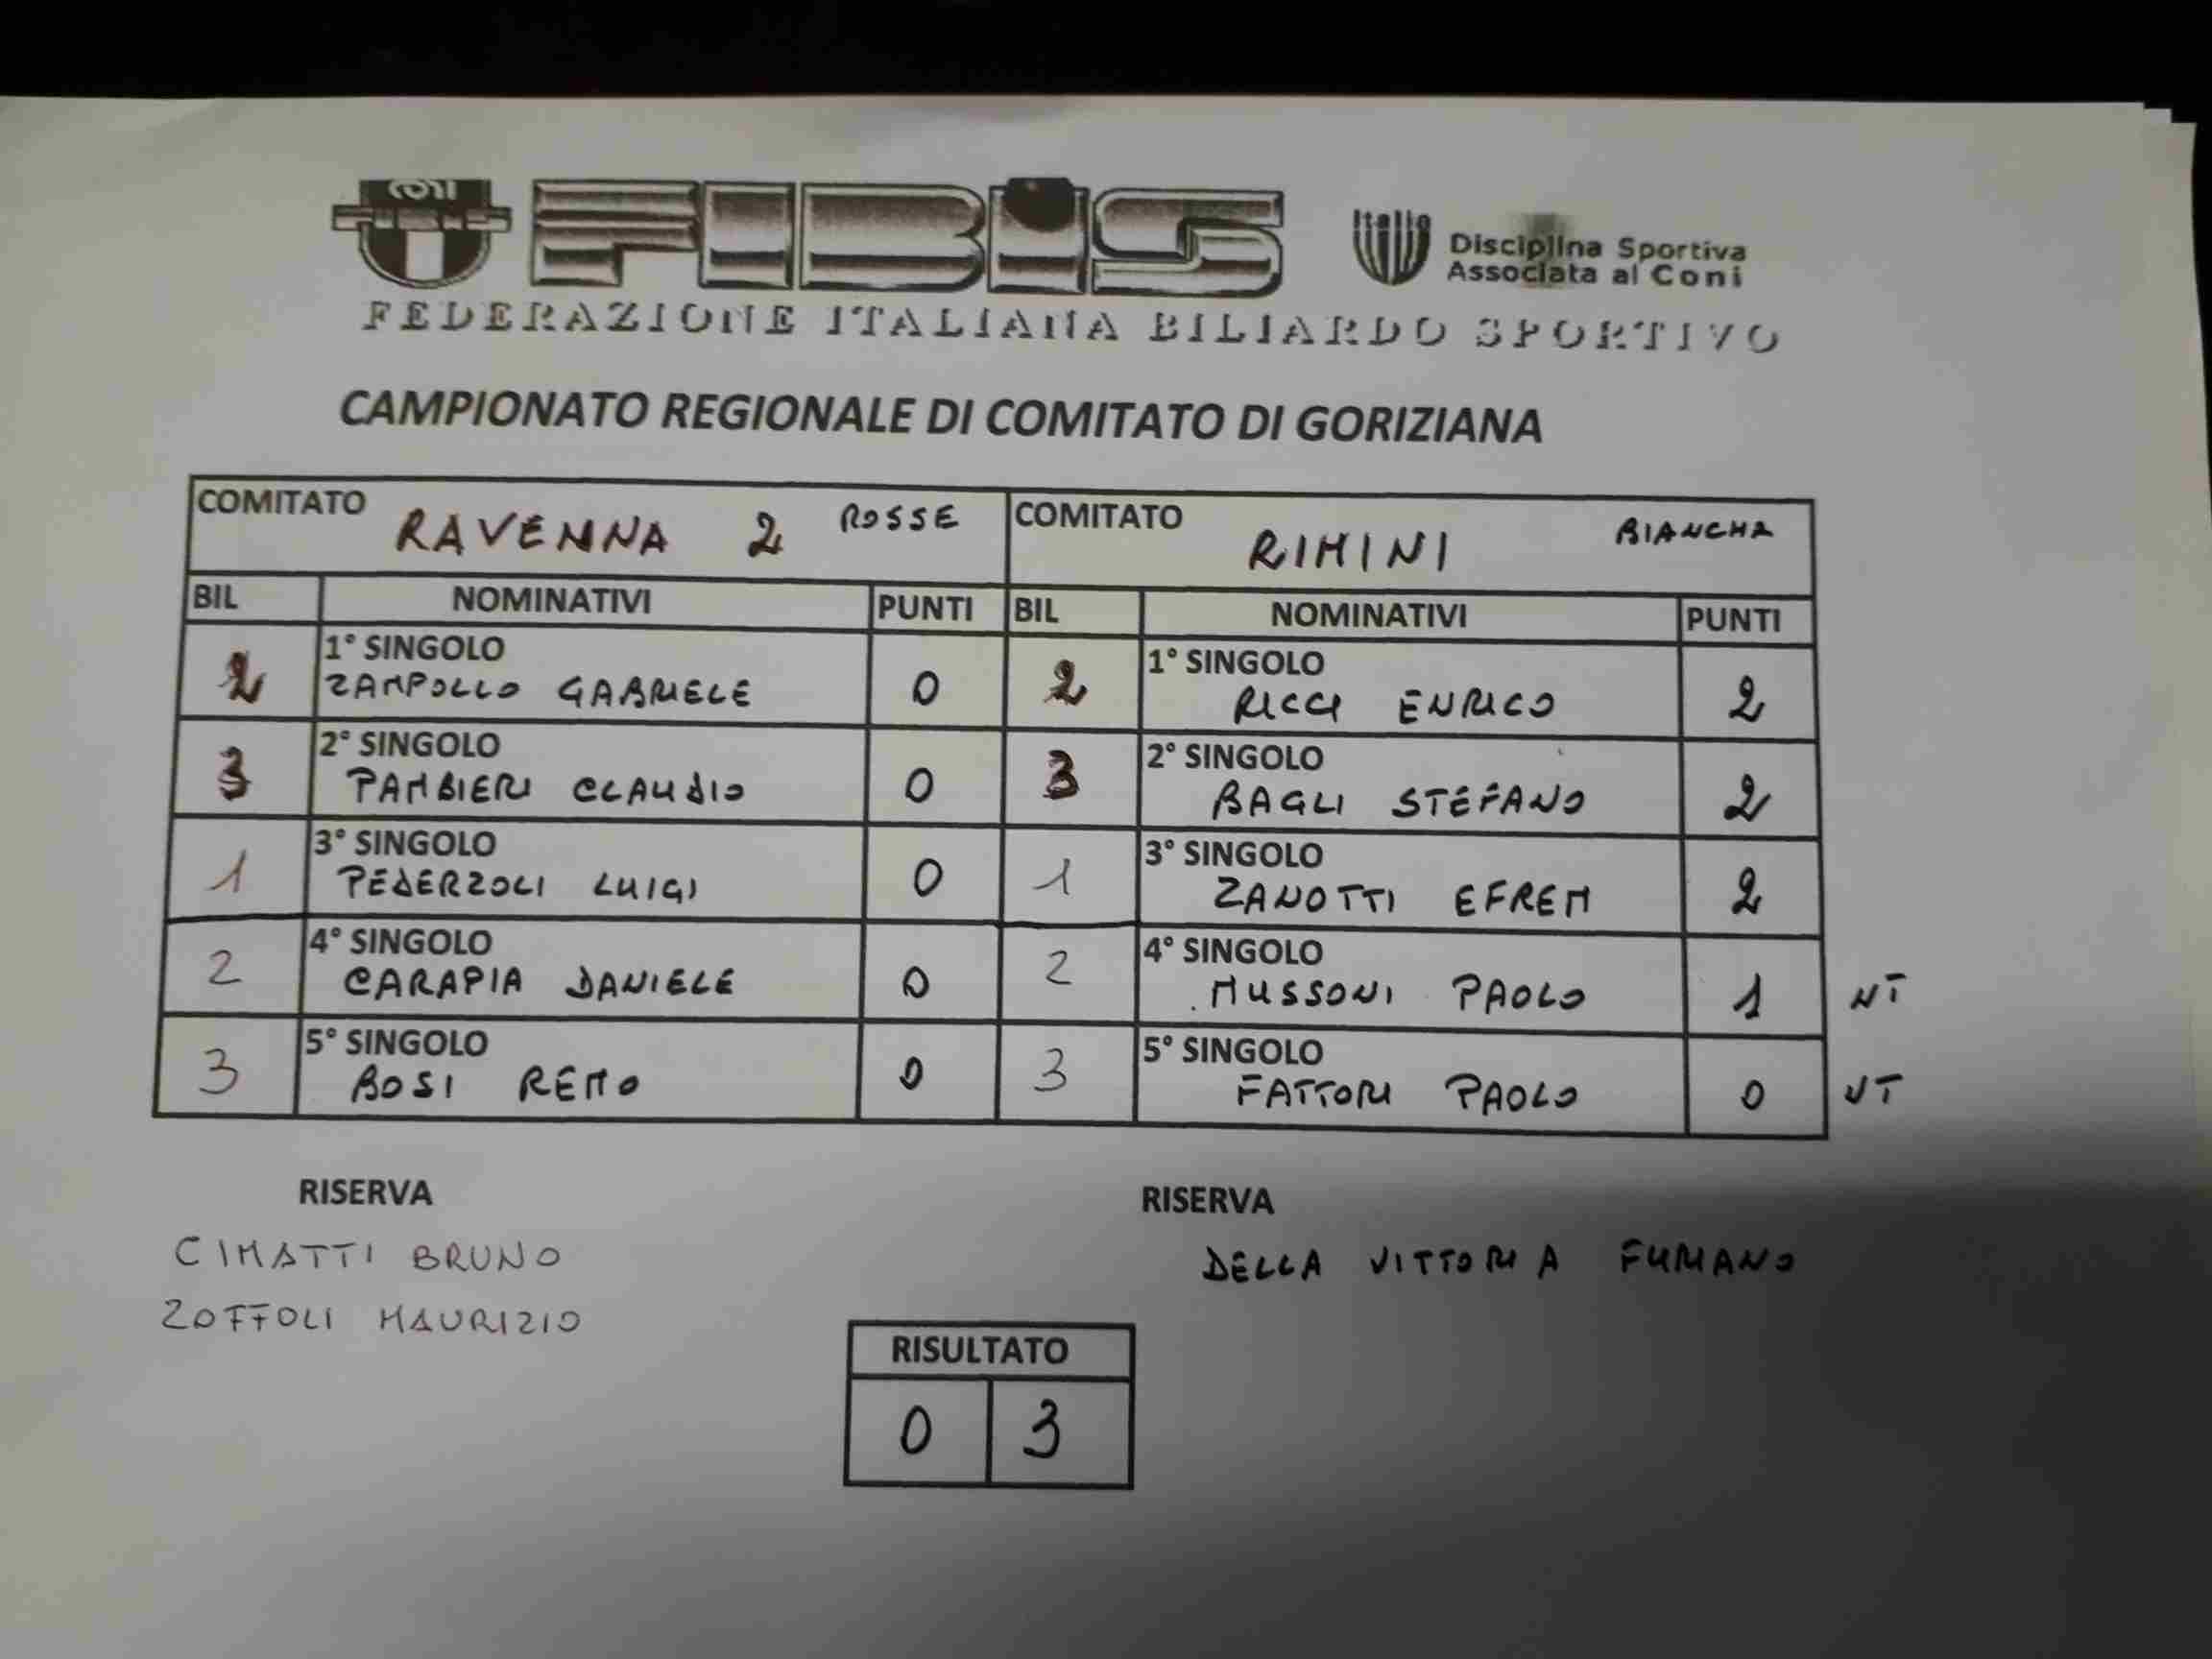 CONI FIBiS Italia Disciplina Sportiva
Associata al Coni
FEDERAZIONE ITALIANA BILIARDO SPORTIVO
CAMPIONATO REGIONALE DI COMITATO DI GORIZIANA
COMITATO RAVENNA 2 ROSSE COMITATO RIMINI BIANCHA
BIL NOMINATIVI PUNTI BIL NOMINATIVI PUNTI
1° SINGOLO 1° SINGOLO
2 ZAMPOLLO GABRIELE 0 2 RICCI ENRICO 2
2° SINGOLO 2° SINGOLO
3 PAMBIERI CLAUDIO 0 3 BAGLI STEFANO 2
3° SINGOLO 3° SINGOLO
1 PEDERZOLI LUIGI 0 1 ZANOTTI EFREM 2
4° SINGOLO 4° SINGOLO
2 CARAPIA DANIELE 0 2 MUSSONI PAOLO 1 NT
5° SINGOLO 5° SINGOLO
3 BOSI REMO 0 3 FATTORI PAOLO 0 NT
RISERVA RISERVA
CIMATTI BRUNO DELLA VITTORIA FURIANO
ZOFFOLI MAURIZIO
RISULTATO
0 3